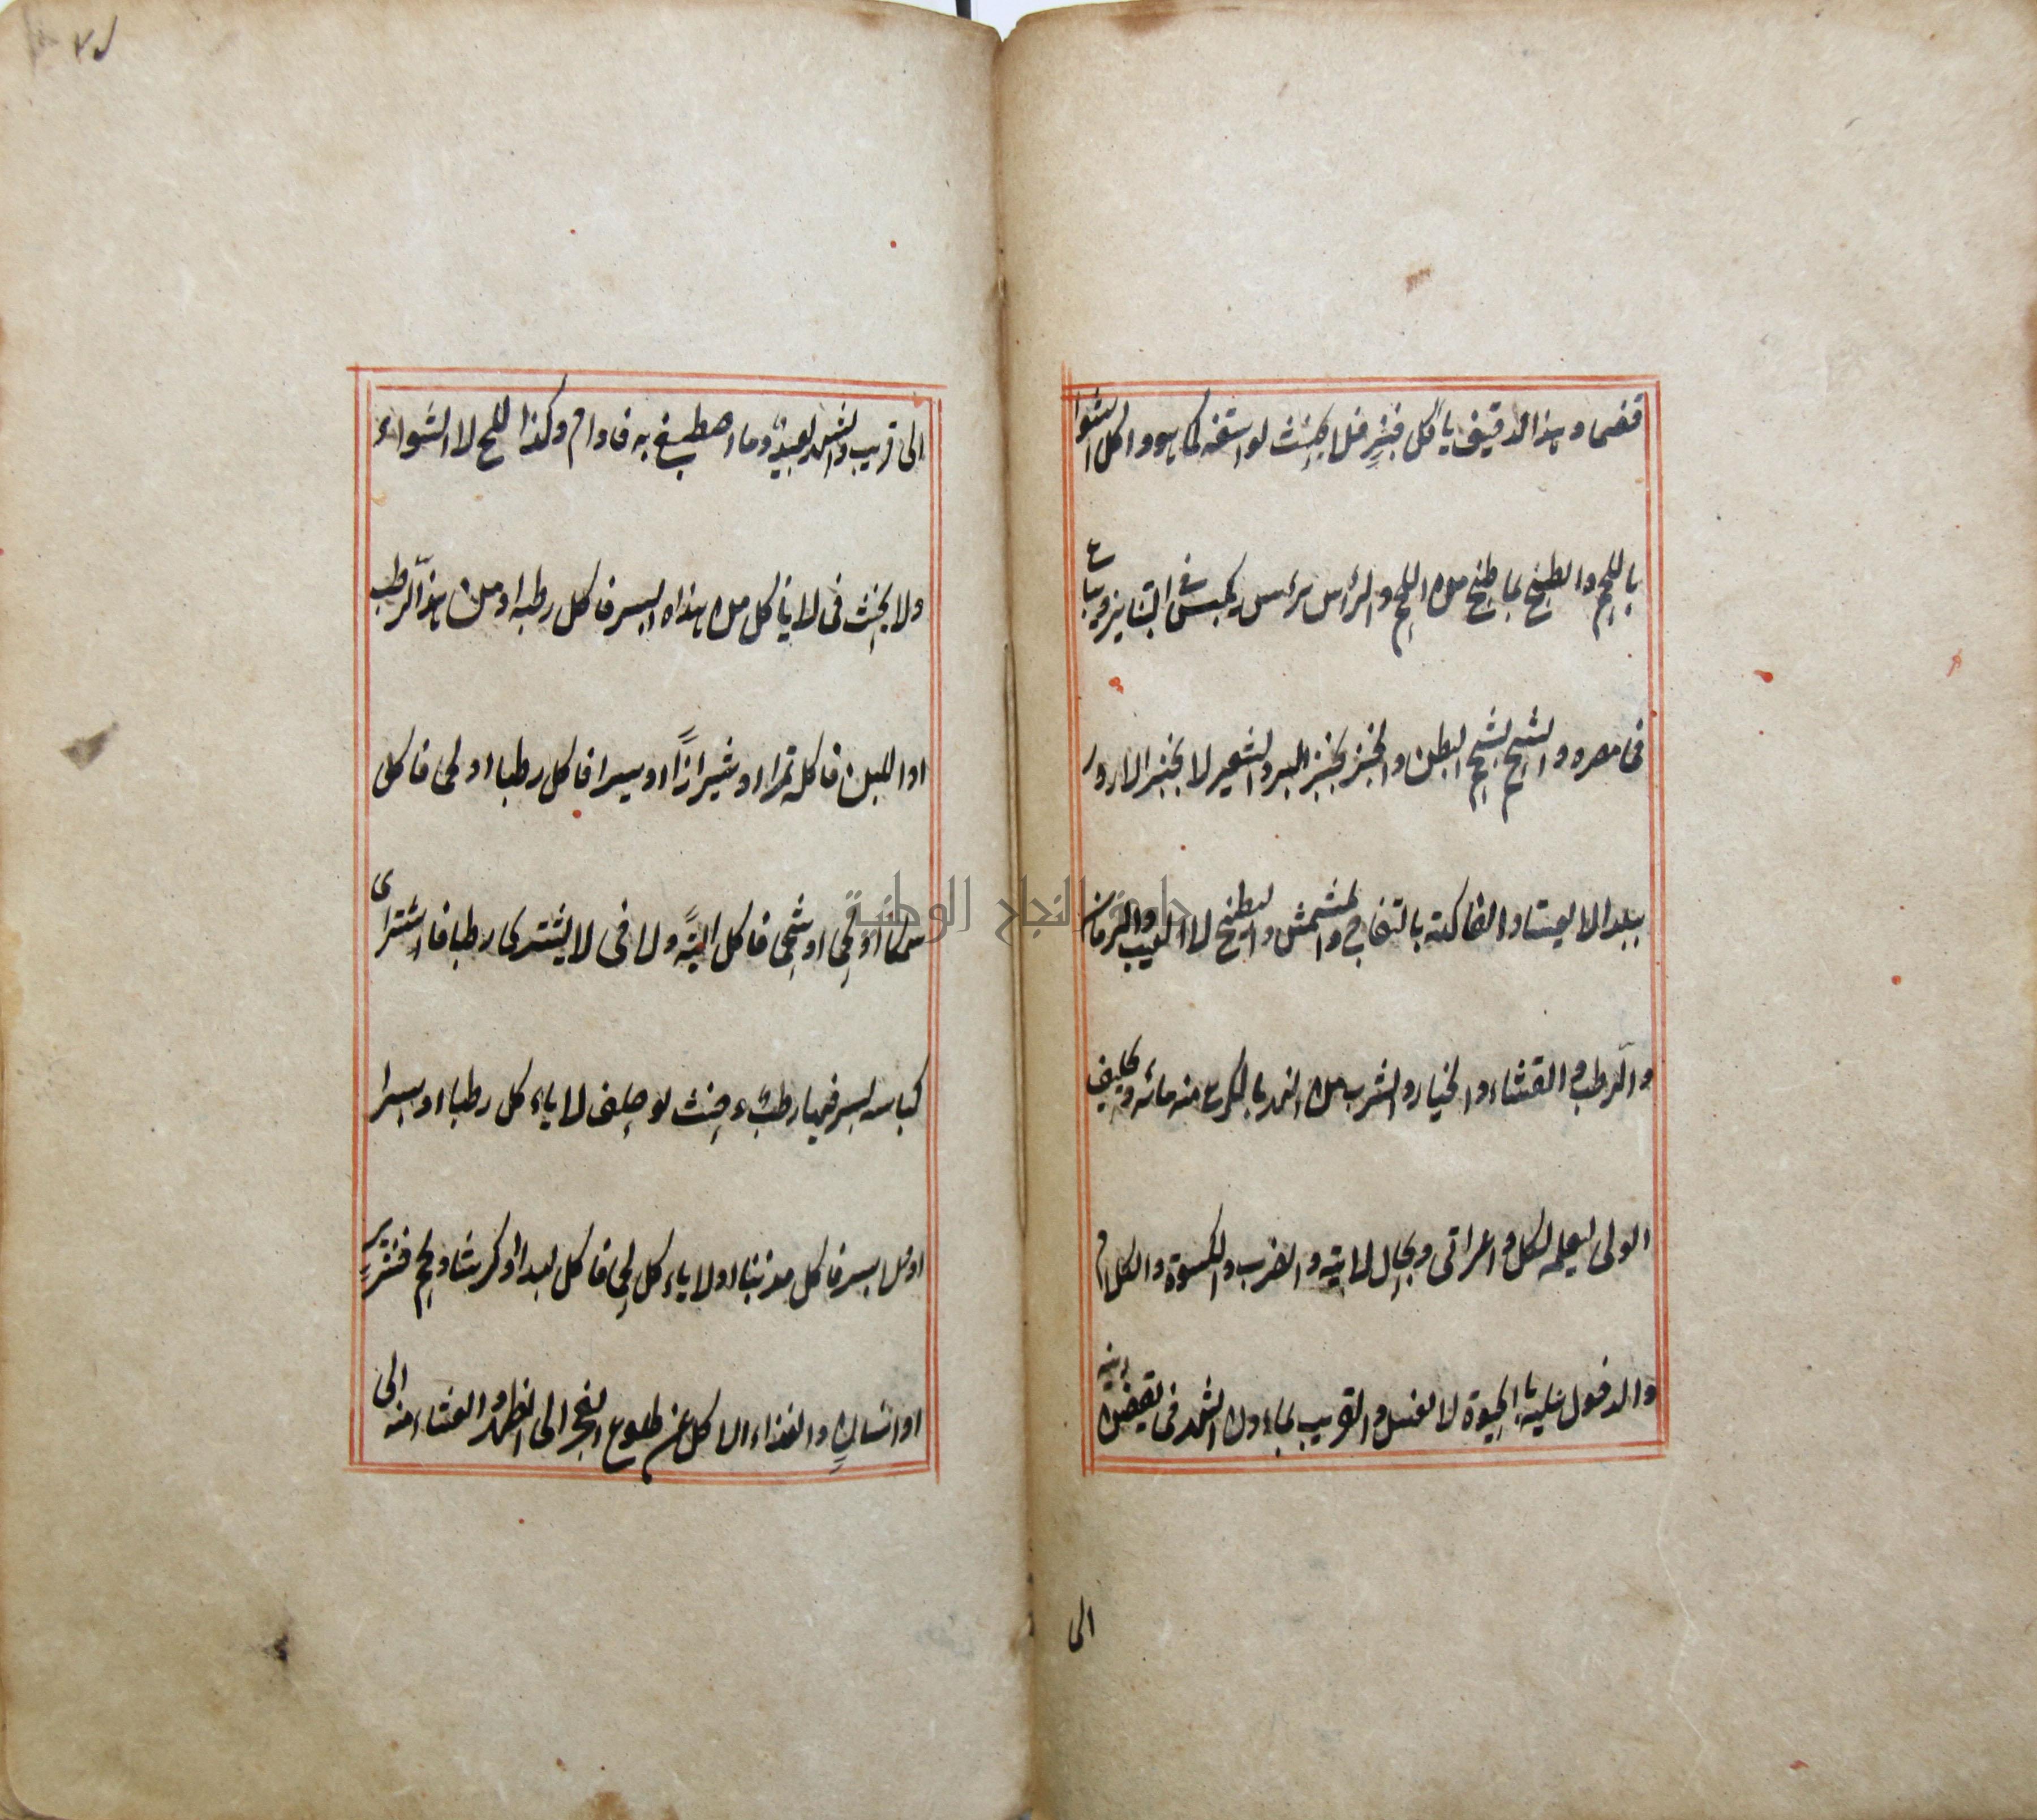 قضما وبهذا الدقيق باكل خبزه فلا يحنث لو استفه كما هو واكل الشوا
باللحم والطبيخ بما طبخ من اللحم والرأس برأس يكبس في التنانير ويباع
فى مصره والشحم بشحم البطن والخبز بخبز البر والشعير لا بخبز الارز
ببلد لا يعتاد والفاكهة بالتفاح والمشمش والبطيخ لا العنب والرمان
والرطب والقثاء والخيار والشرب من النهر بالكرع منه وتحليف
الوالى ليعلمه لكل داعر اتى وبحال ولايته والضرب والكسوة والكلام
والدخول عليه بالحيوة لا الغسل والقريب بما دون الشهر فى ليقضين دينه
الى
٧٨
الى قريب والشهر بعيد وما اصطبغ به فادام وكذا الملح لا الشواء
ولا يحنث فى لا يأكل من هذا البسر فاكل رطبه او من هذا الرطب
او اللبن فاكله تمرا او شيرازا او بسرا فاكل رطبا او لحما فاكل
سمكا او لحما او شحما فاكل الية ولا فى لا يشترى رطبا فاشترى
كباسة بسر فيها رطب وحنث لو حلف لا ياءكل رطبا او بسرا
او بسر فاكل مذنبا او لا ياءكل لحما فاكل كبدا او كرشا او لحم خنزير
او انسان والغداء الاكل من طلوع الفجر الى الظهر والعشاء منه الى
جامعة النجاح الوطنية